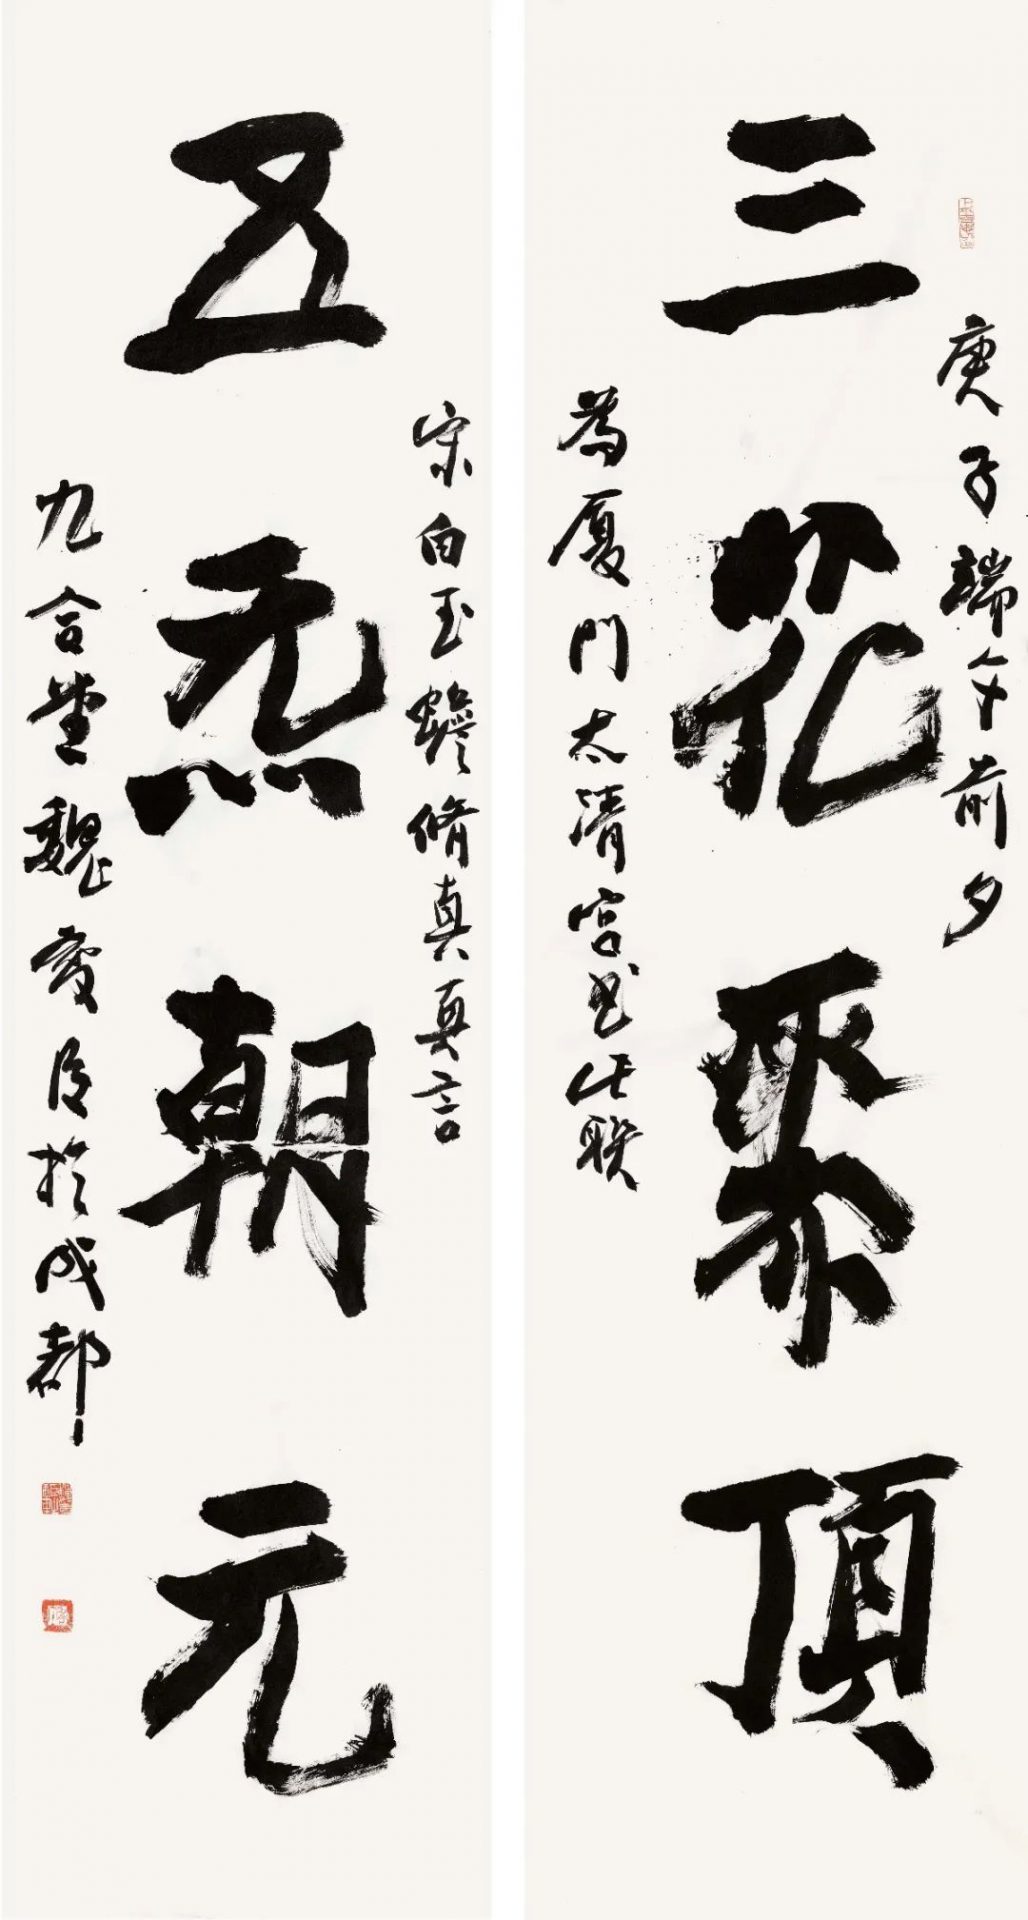 庚子端午前夕
三花聚頂
為厦門太清宫书此联
宋白玉蟾脩真真言
五炁朝元
九合堂魏於成都